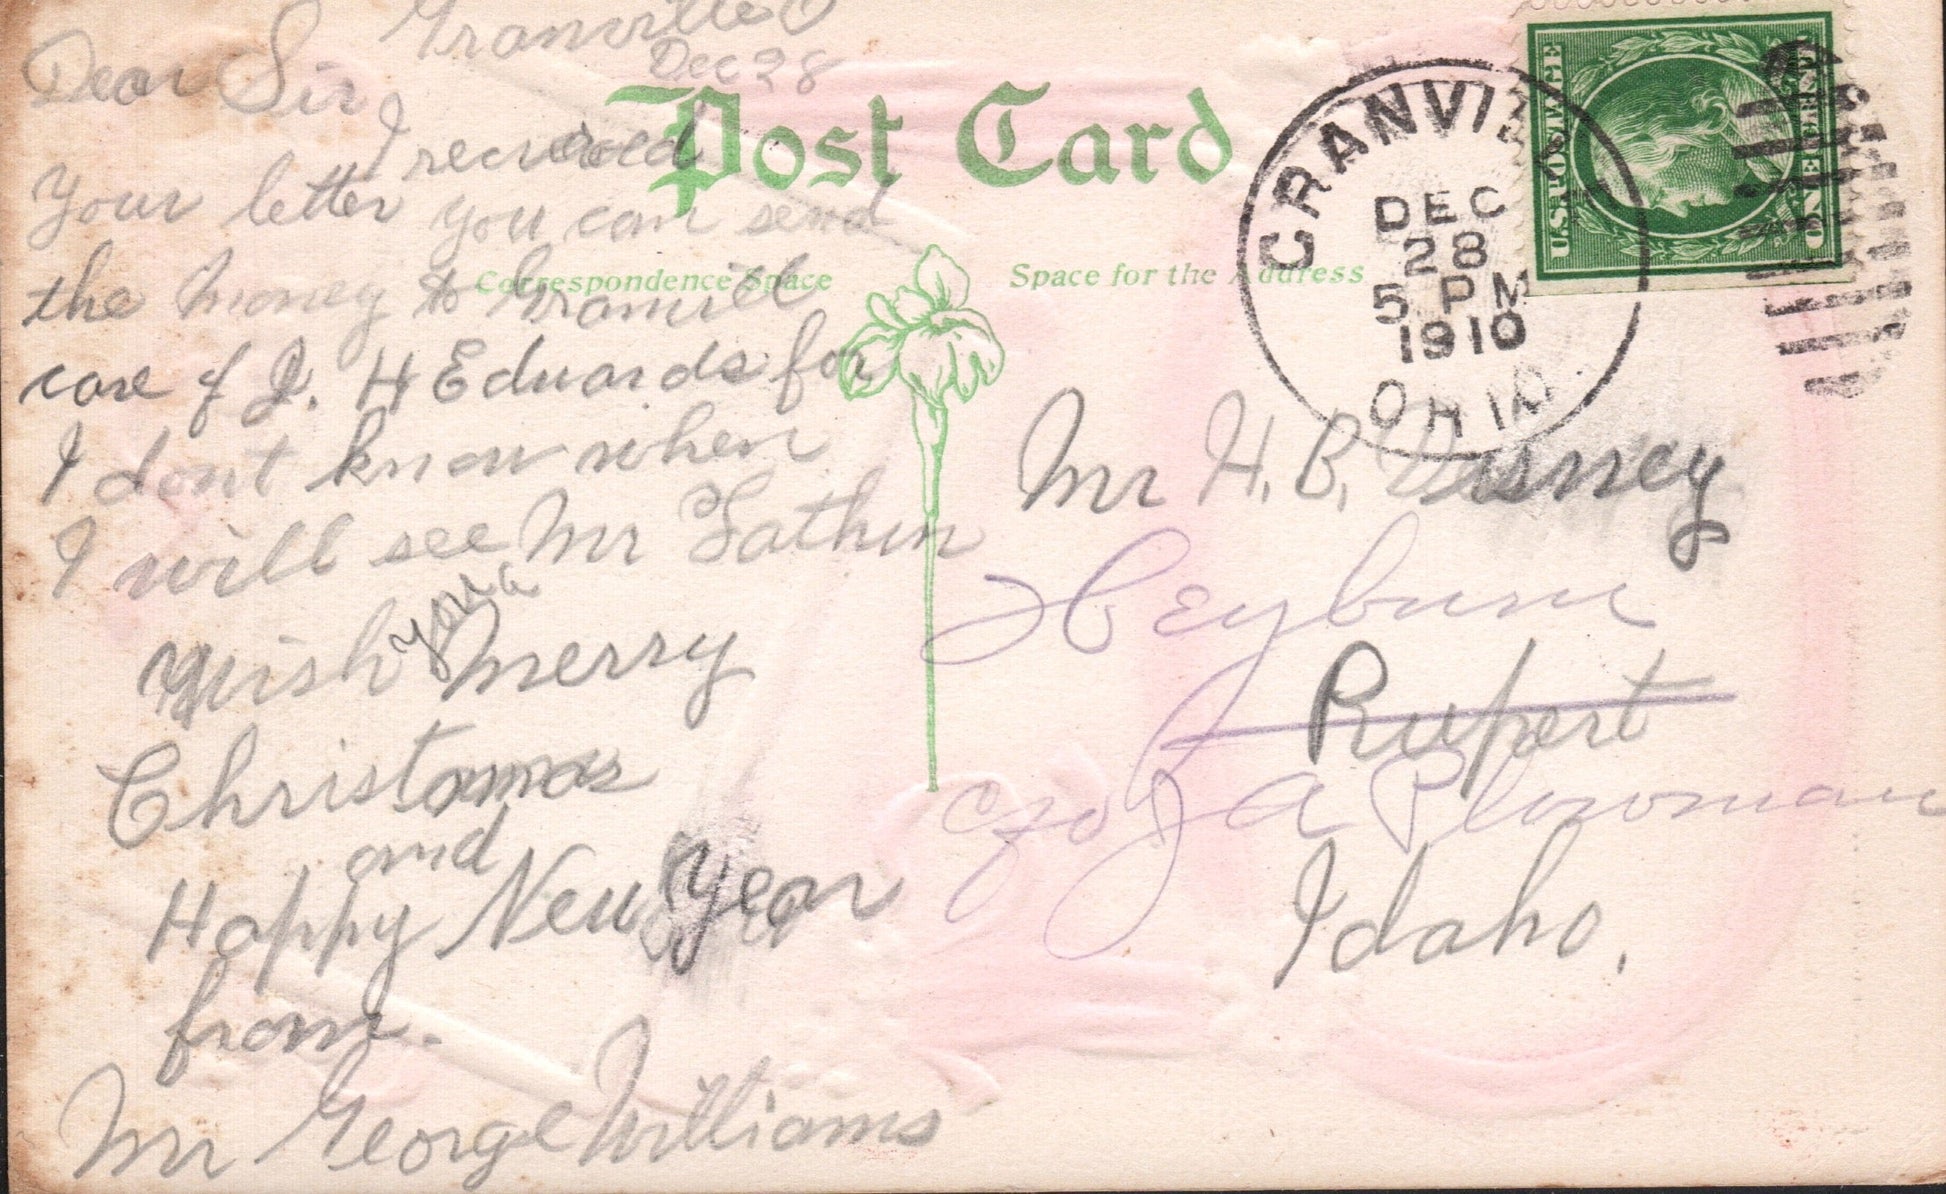 Granville O
Dec 28
Dear Sir
I recieved
Your letter you can send
the money to Granvill
care of J. H Edwards for
I dont know when
I will see Mr
Wish you a merry
Christmas
and
Happy New Year
from.
Mr George Williams
Post Card
Correspondence Space
Space for the Address
GRANVILLE
DEC
28
5 PM
1910
OHIO
U.S. POSTAGE
ONE CENT
Mr H. B.
Heyburn
Rupert
c/o J A Plowman
Idaho,